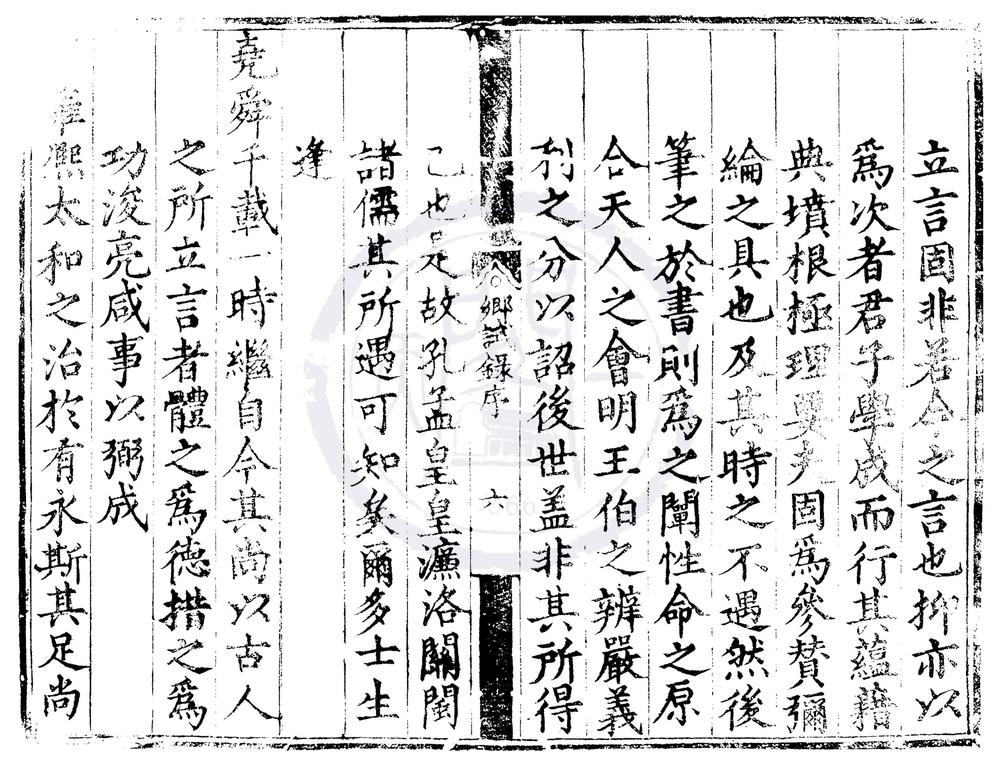 立言固非若今之言也抑亦以
爲次者君子學成而行其蘊藉
典墳根極理要夫固爲參賛彌
綸之具也及其時之不遇然後
筆之於書則爲之闡性命之原
合天人之會明王伯之辨嚴義
利之分以詔後世盖非其所得
鄉試錄序
六
已也是故孔孟皇皇濂洛關閩
諸儒其所遇可知矣爾多士生
逢
堯舜千載一時繼自今其尚以古人
之所立言者體之爲德措之爲
功浚亮咸事以弼成
熈太和之治於有永斯其足尚